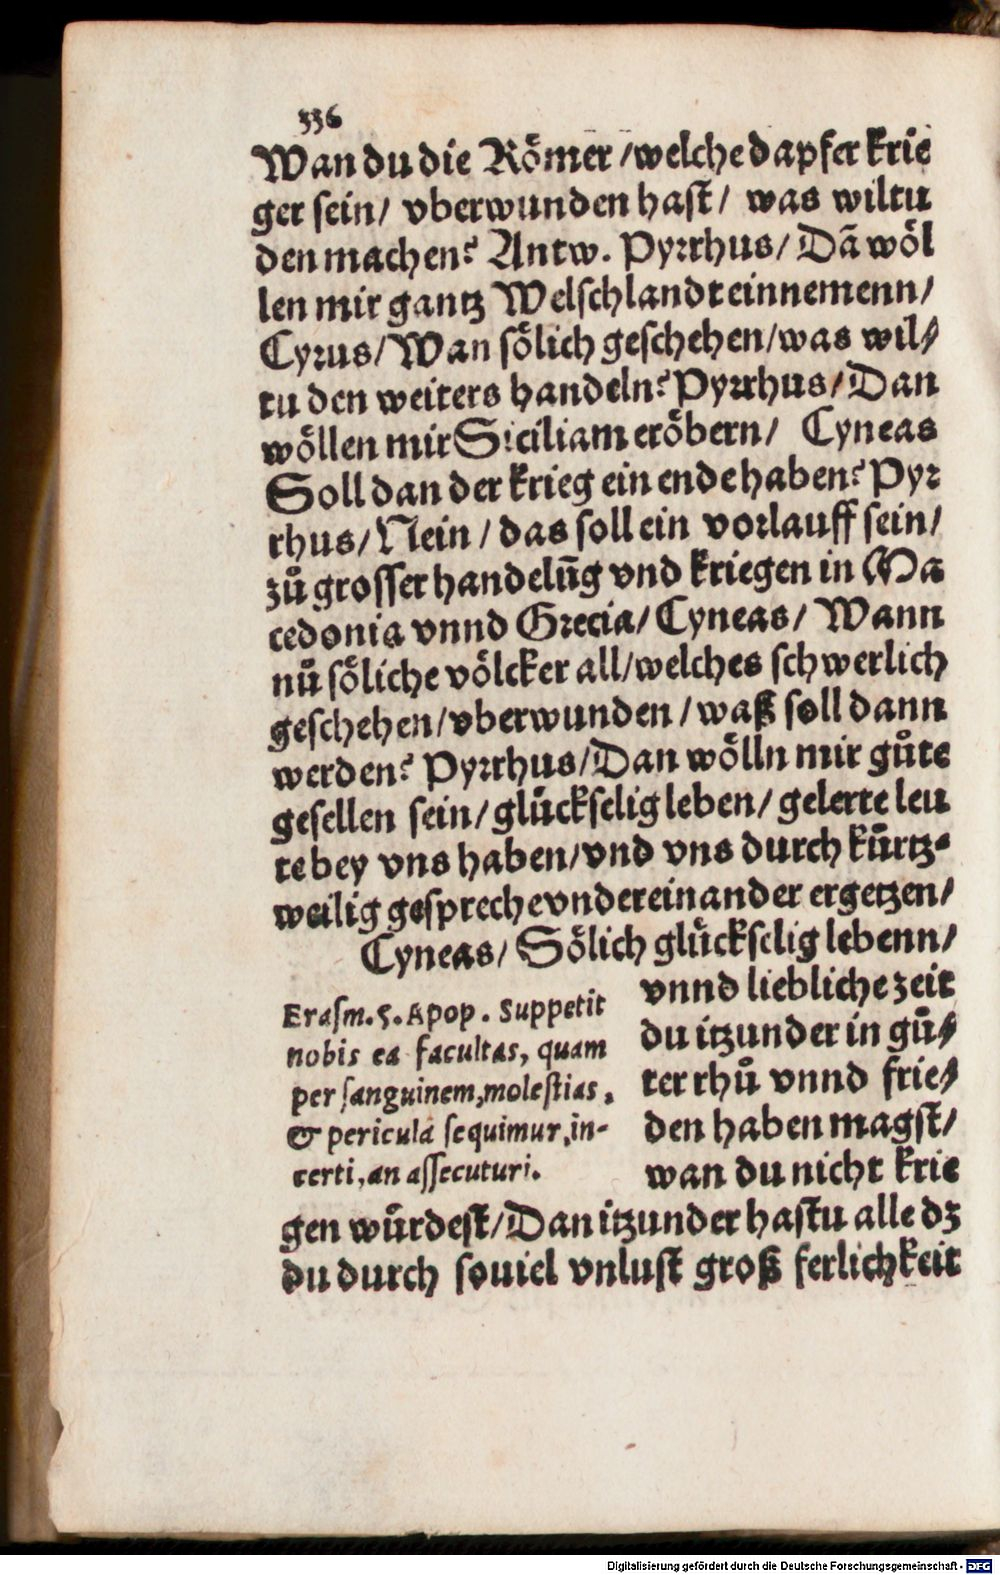 336
Wan du die Römer / welche dapfer krie
ger sein / vberwunden hast / was wiltu
den machen? Antw. Pyrrhus / Dā wöl
len mir gantz Welschlandt einnemenn /
Cyrus / Wan sölich geschehen / was wil⸗
tu den weiters handeln? Pyrrhus / Dan
wöllen mir Siciliam eröbern / Cyneas
Soll dan der krieg ein ende haben? Pyr
rhus / Nein / das soll ein vorlauff sein /
zů grosser handelūg vnd kriegen in Ma
cedonia vnnd Grecia / Cyneas / Wann
nů söliche völcker all / welches schwerlich
geschehen / vberwunden / waß soll dann
werden? Pyrrhus / Dan wölln mir gůte
gesellen sein / glückselig leben / gelerte leu
te bey vns haben / vnd vns durch kürtz⸗
weilig gespreche vndereinander ergetzen /
Cyneas / Sölich glückselig lebenn /
vnnd liebliche zeit
du itzunder in gů⸗
ter rhů vnnd frie⸗
den haben magst /
wan du nicht krie
Erasm. 5. Apop. Suppetit
nobis ea facultas, quam
per sanguinem, molestias,
& pericula sequimur, in-
certi, an assecuturi.
gen würdest / Dan itzunder hastu alle dz
du durch souiel vnlust groß ferlichkeit
Digitalisierung gefördert durch die Deutsche Forschungsgemeinschaft - DFG